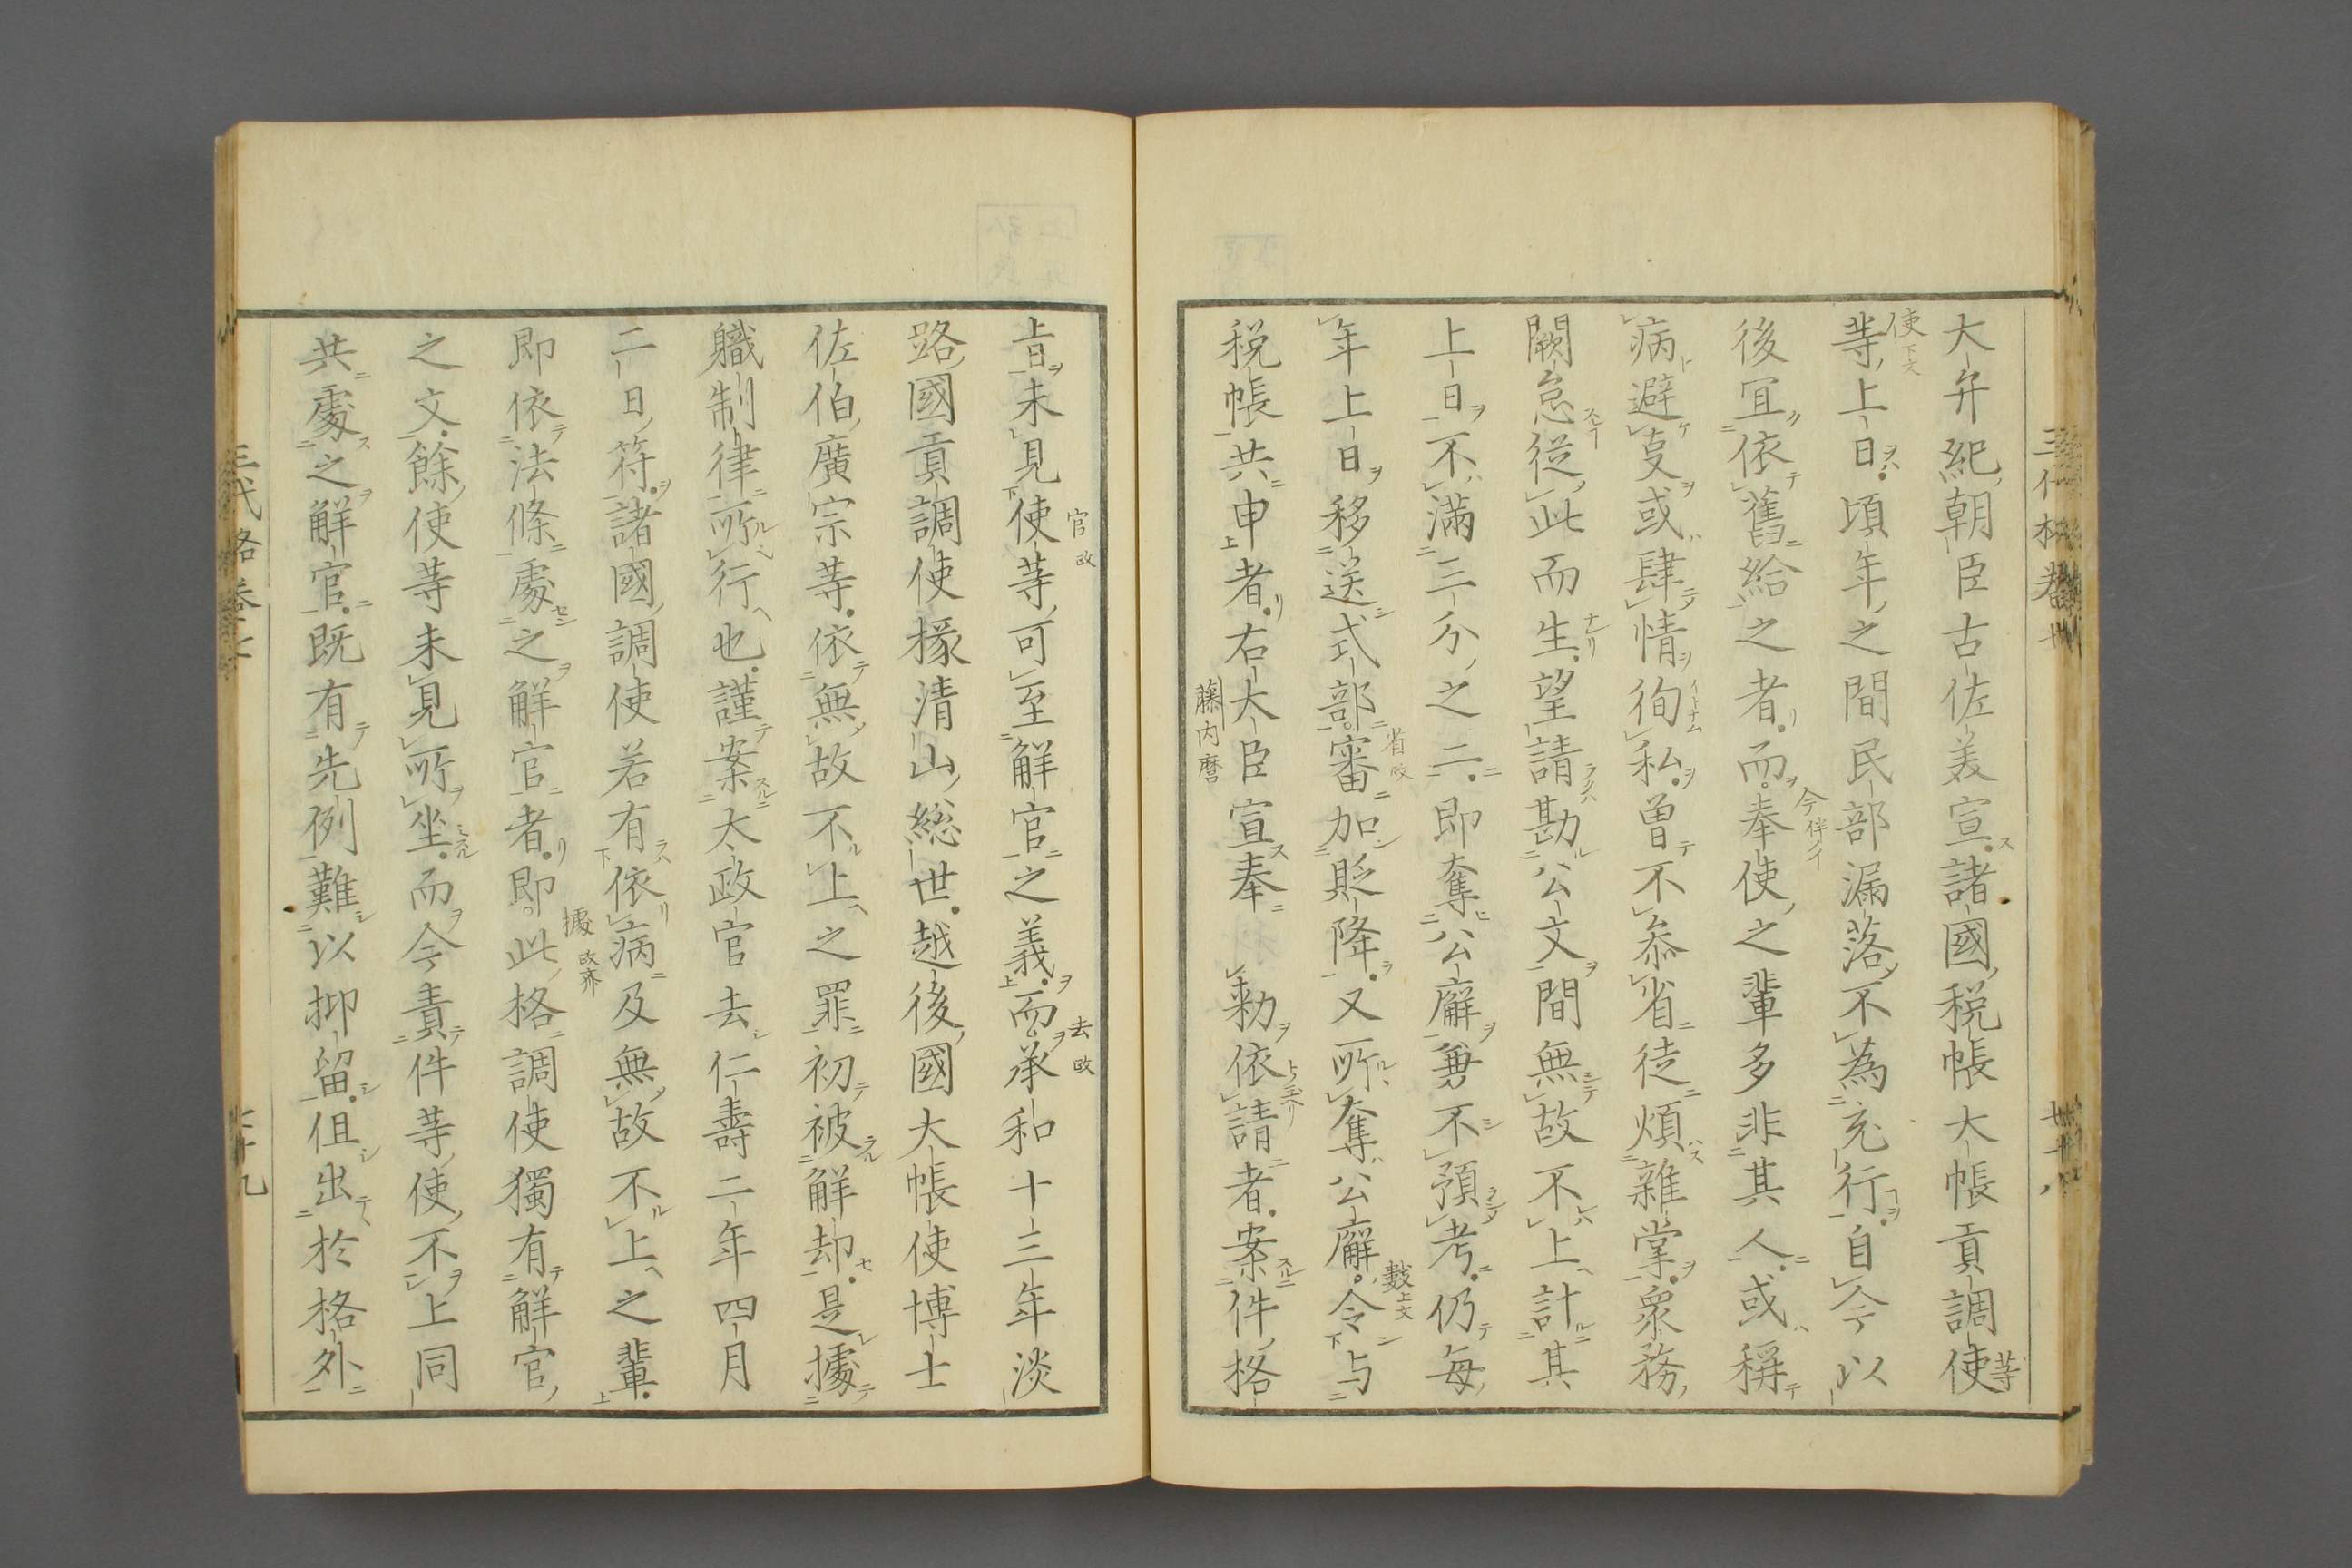 大弁紀朝臣古佐美宣諸國税帳大帳貢調使等
等上日頃年之間民部漏落不為充行自今以
後冝依舊給之者而奉使之輩多非其人或稱
病避㕝或肆情徇私曽不叅省徒煩雜掌衆務
闕怠從此而生望請勘公文間無故不上計其
上日不滿三分之二即奪公廨兼不預考仍毎
年上日移送式部審加貶降又所奪公廨令与
税帳共申者右大臣宣奉勅依請者案件格
旨未見使等可至解官之義而承和十三年淡
路國貢調使掾清山総世越後國大帳使博士
佐伯廣宗等依無故不上之罪初被解却是據
軄制律所行也謹案太政官去仁壽二年四月
二日符諸國調使若有依病及無故不上之輩
即依法條處之解官者即此格調使獨有解官
之文餘使等未見所坐而今責件等使不上同
共處之解官既有先例難以抑留但出於格外